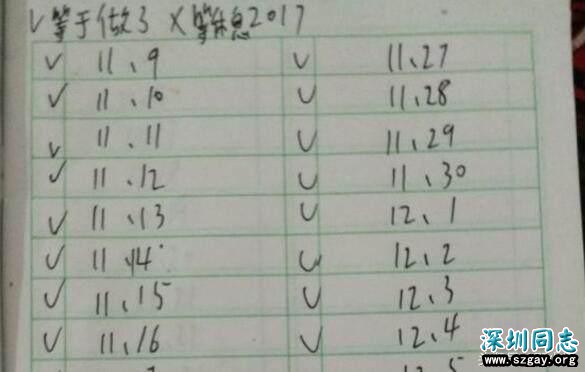 √等于做了 ×等于休息2017
√ 11、9 √ 11、27
√ 11、10 √ 11、28
√ 11、11 √ 11、29
√ 11、12 √ 11、30
√ 11、13 √ 12、1
√ 11、14 √ 12、2
√ 11、15 √ 12、3
√ 11、16 √ 12、4
深圳同志
www.szgay.org